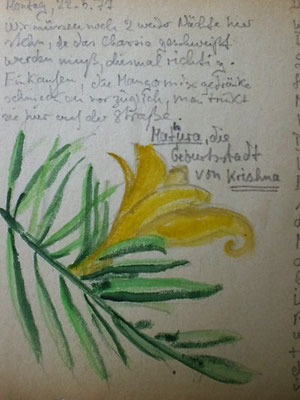 Montag, 22.5.77
Wir müssen noch 2 weitere Nächte hier
stehn, da das Chassis geschweißt
werden muß, diesmal richtig.
Einkaufen, die Mangomixgetränke
schmecken vorzüglich, man trinkt
sie hier auf der Straße.
Matura, die
Geburtsstadt
von Krishna